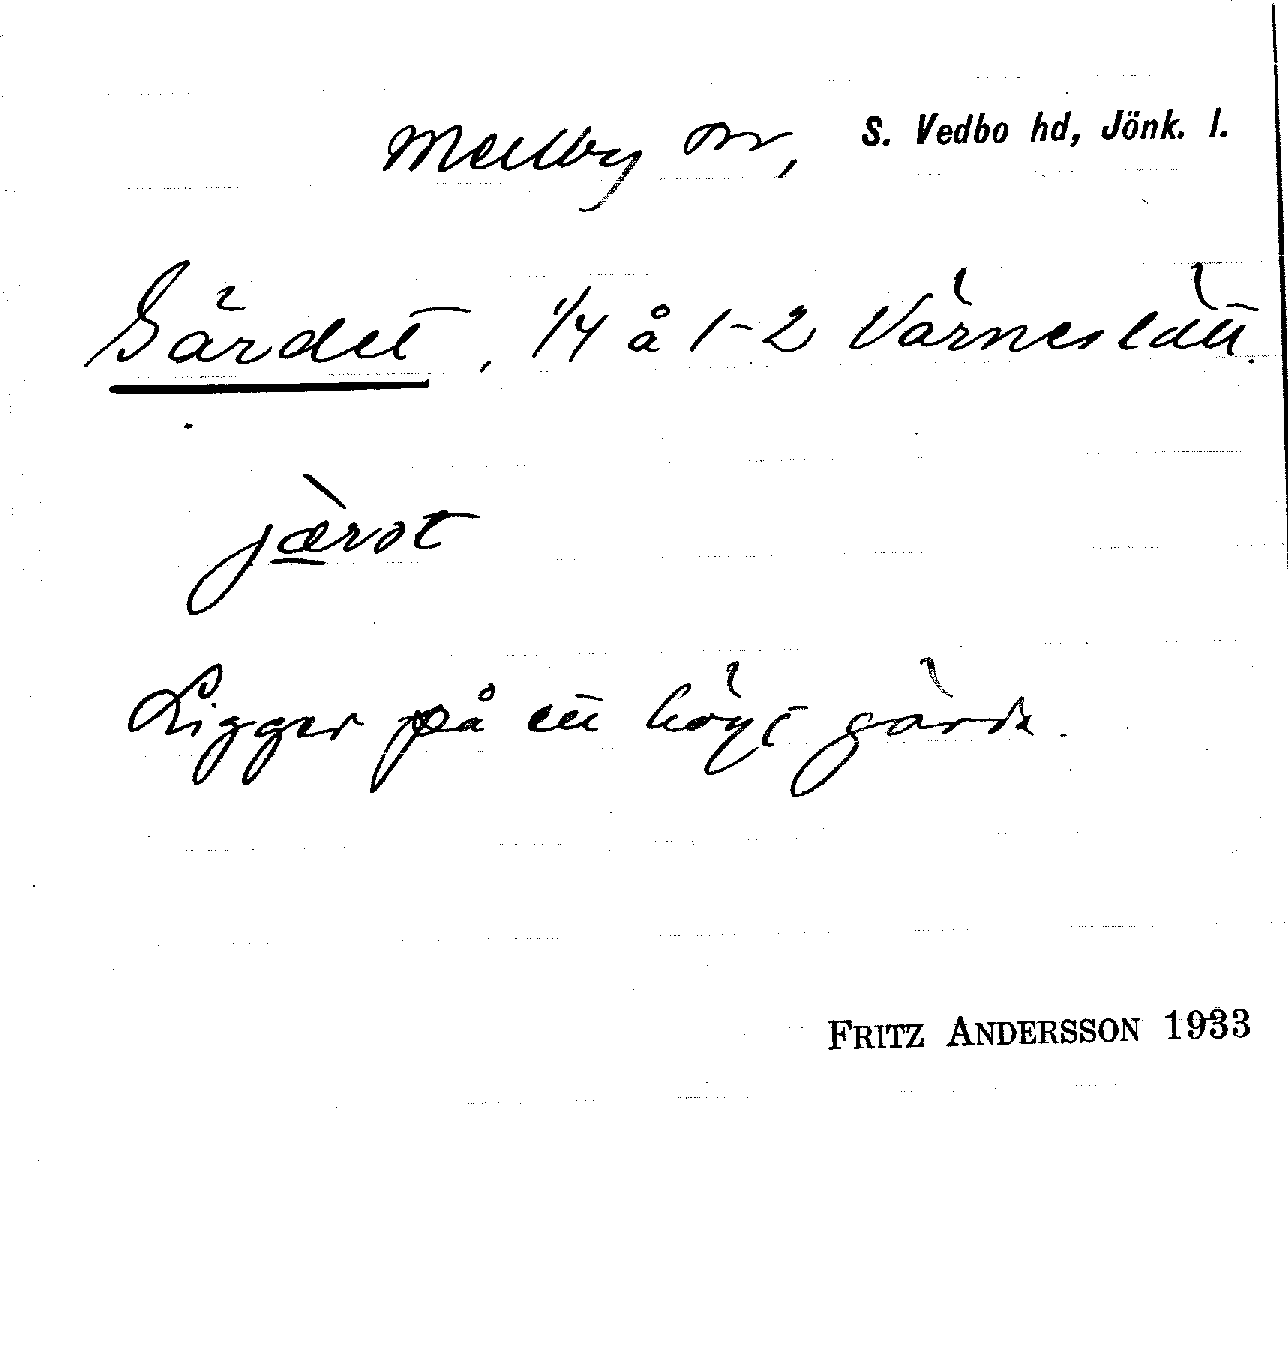 Mellby sn, S. Vedbo hd, Jönk. l.
Gärdet, 1/4 å 1-2 Värneslätt.
jæ̀rot
Ligger på ett högt gärde.
FRITZ ANDERSSON 1933